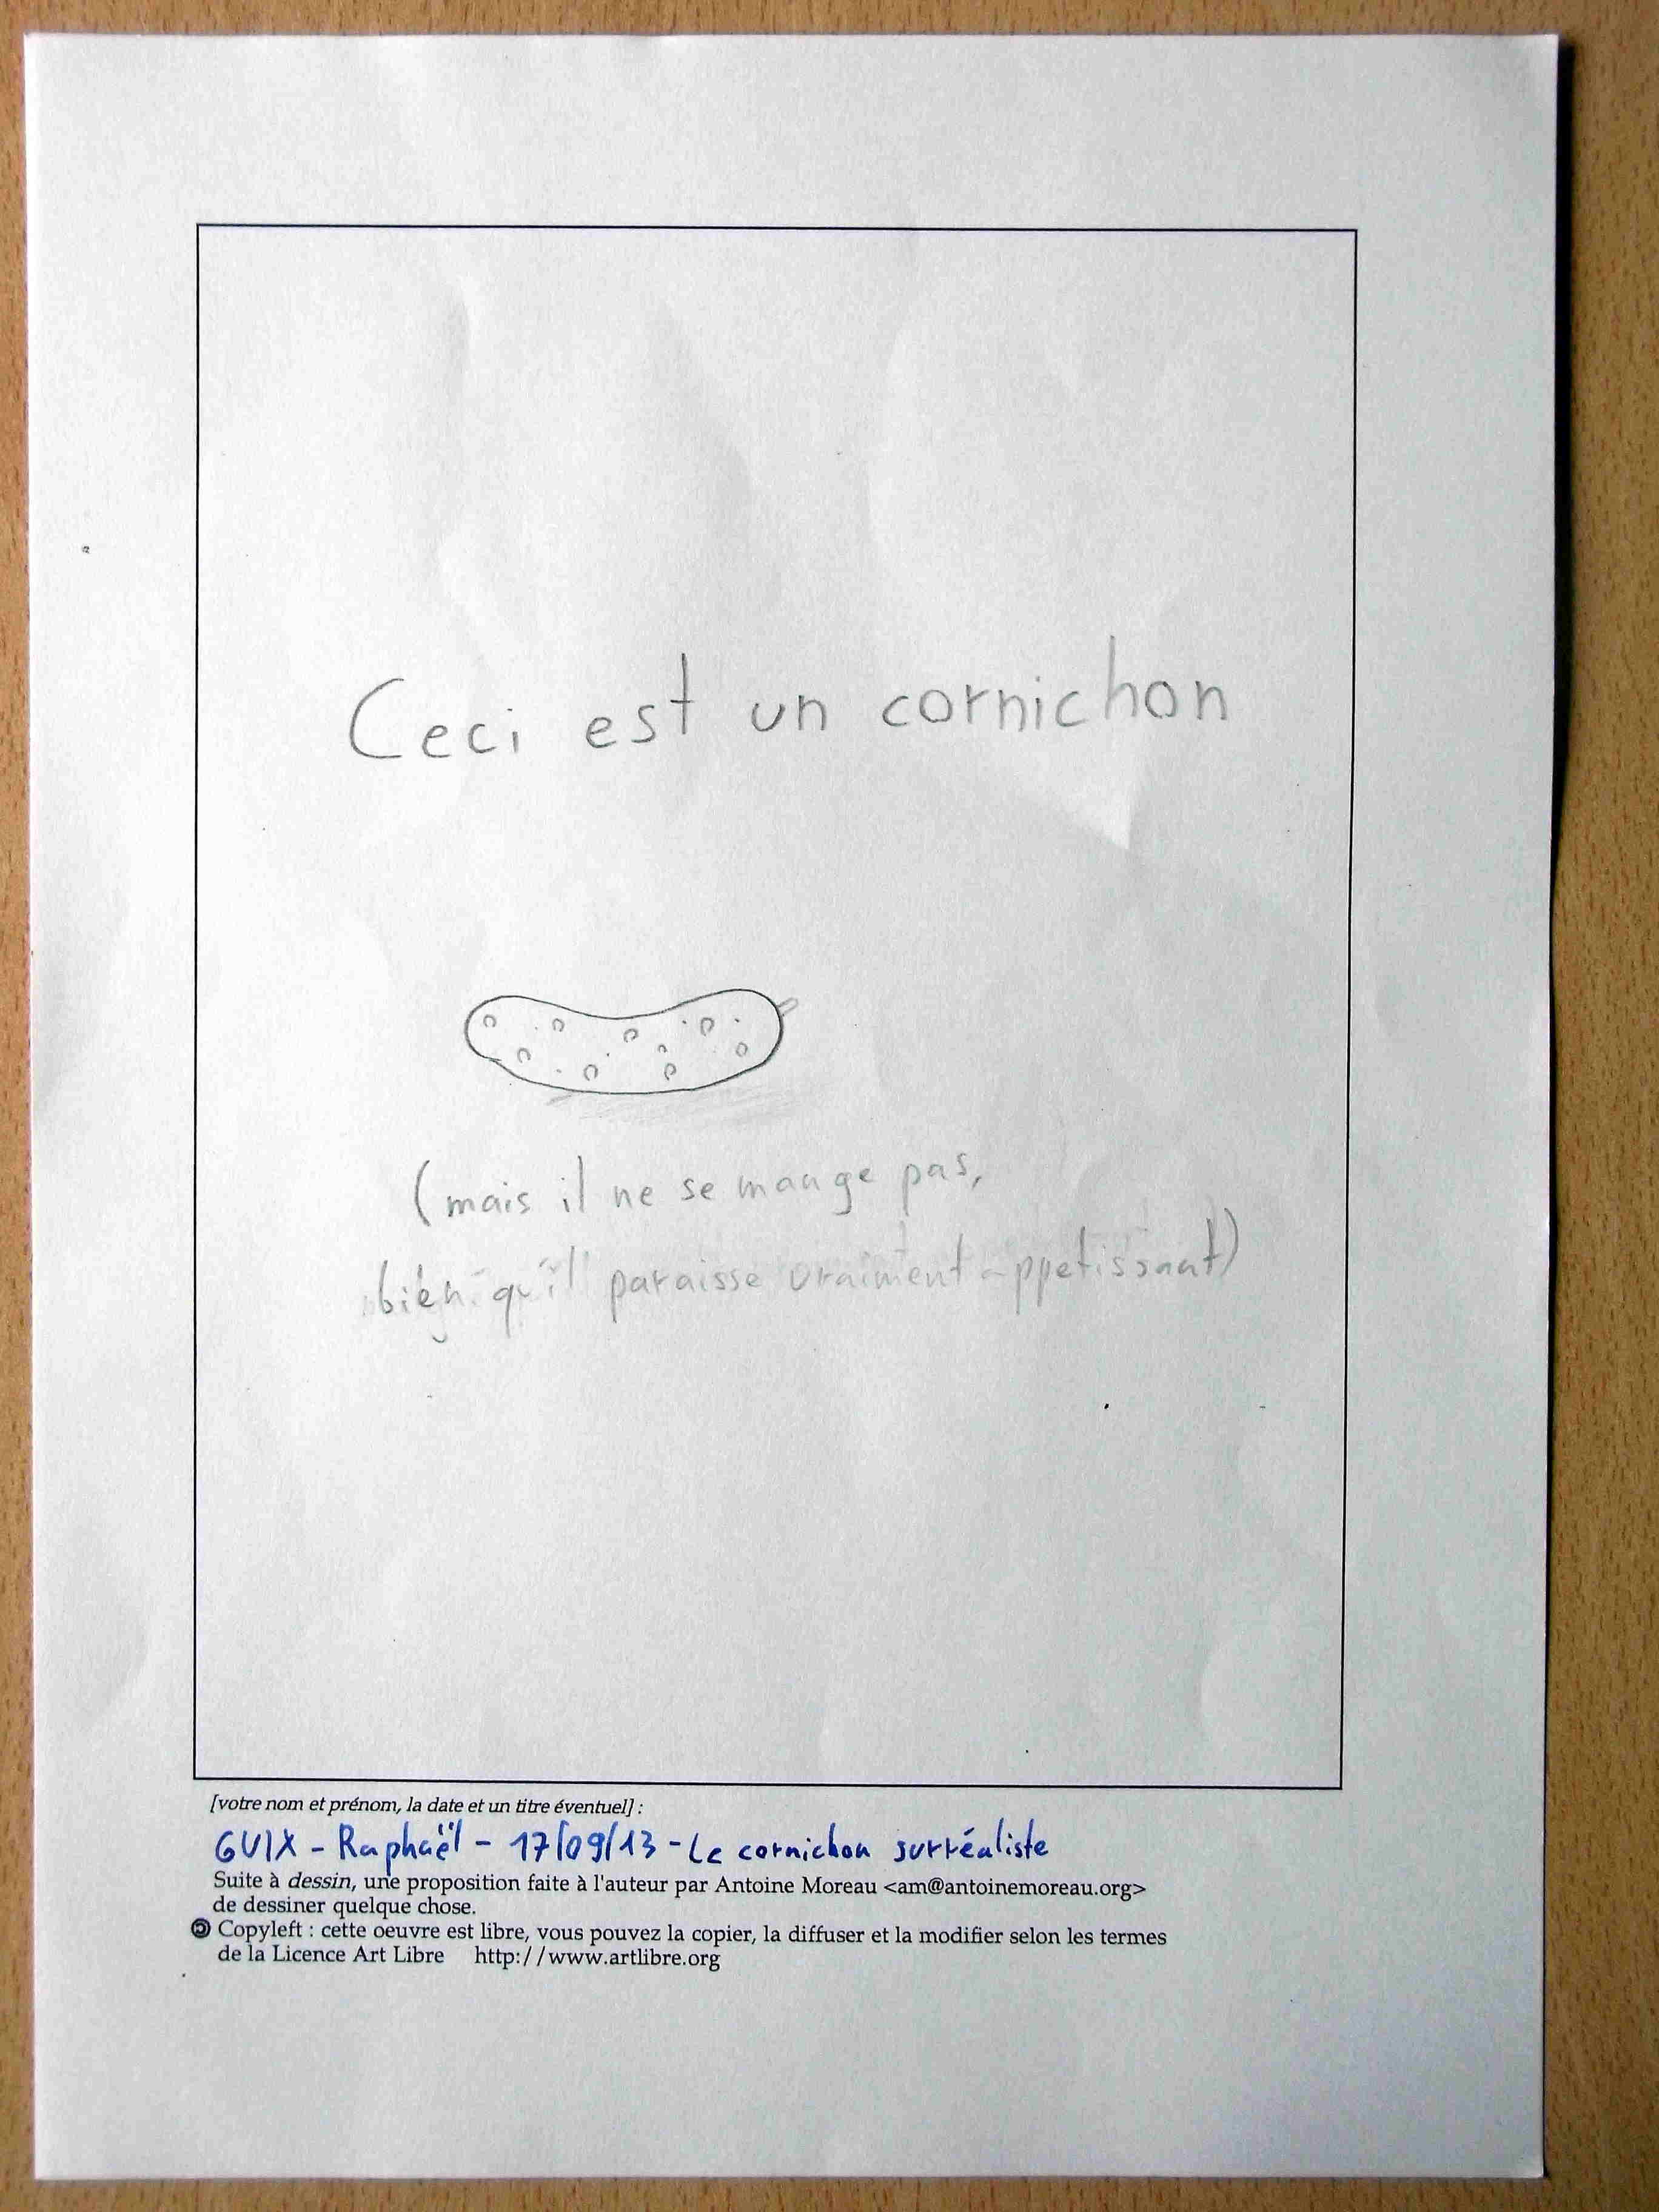 Ceci est un cornichon
(mais il ne se mange pas,
bien qu'il paraisse vraiment appetissant)
[votre nom et prénom, la date et un titre éventuel] :
GUIX - Raphaël - 17/09/13 - Le cornichon surréaliste
Suite à dessin, une proposition faite à l'auteur par Antoine Moreau <am@antoinemoreau.org>
de dessiner quelque chose.
Copyleft : cette oeuvre est libre, vous pouvez la copier, la diffuser et la modifier selon les termes
de la Licence Art Libre http://www.artlibre.org